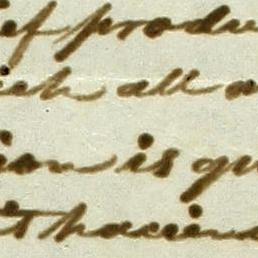 ef produ
ich all a
ion is qu
it hacien